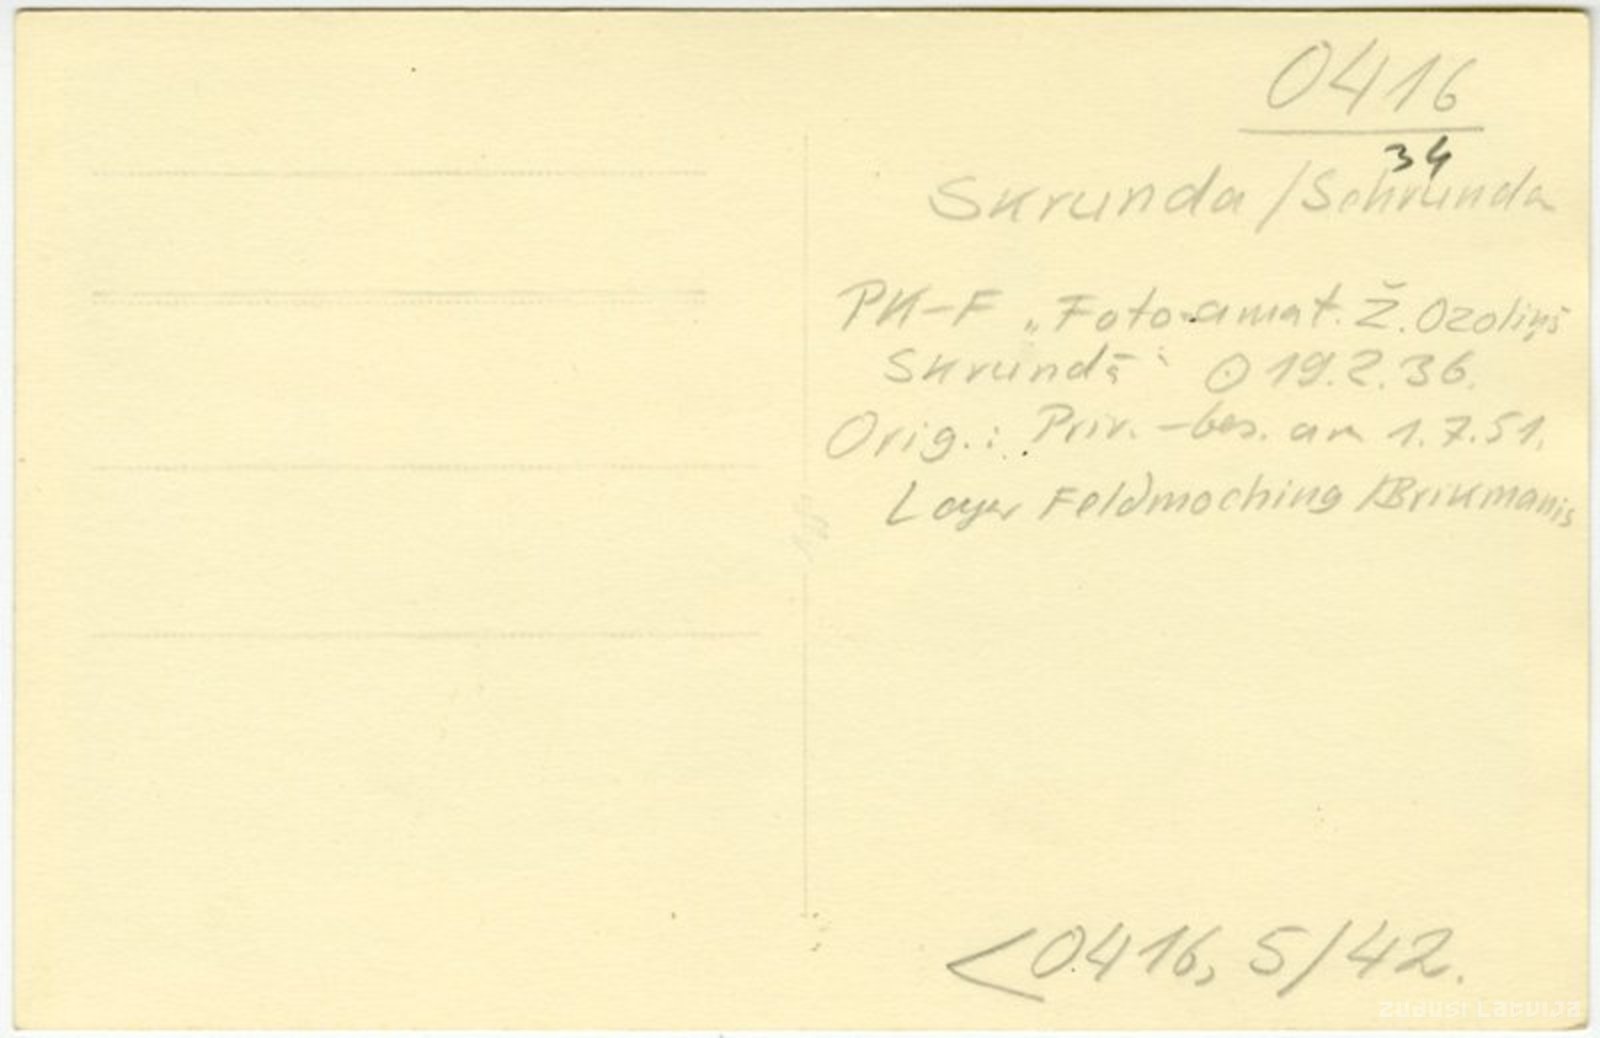 0416
34
Skrunda / Schrunda
PK-F „Foto-amat. Ž. Ozoliņš
Skrundā“ ʘ 19.2.36.
Orig.: Priv.-bes. am 1.7.51.
Lager Feldmoching / Brikmanis
< 0416, 5/42.
zudusi Latvija